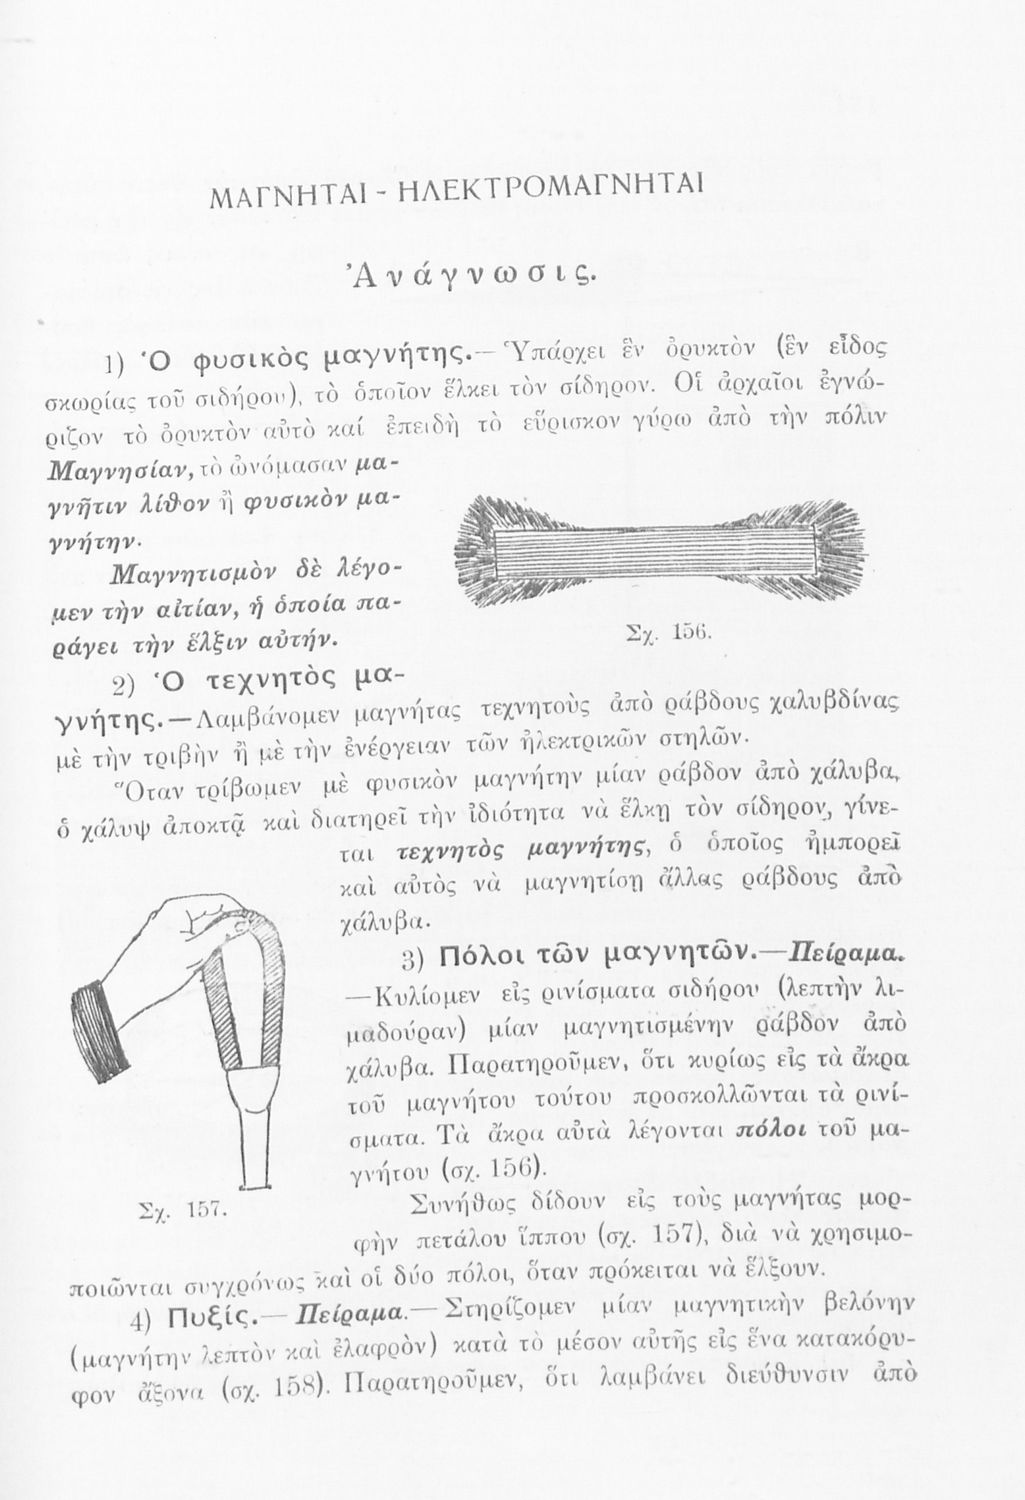 ΜΑΓΝΗΤΑΙ - ΗΛΕΚΤΡΟΜΑΓΝΗΤΑΙ
Ἀνάγνωσις.
1) Ὁ φυσικὸς μαγνήτης.— Ὑπάρχει ἓν ὀρυκτὸν (ἓν εἶδος
σκωρίας τοῦ σιδήρου), τὸ ὁποῖον ἕλκει τὸν σίδηρον. Οἱ ἀρχαῖοι ἐγνώ-
ριζον τὸ ὀρυκτὸν αὐτὸ καί ἐπειδὴ τὸ εὕρισκον γύρω ἀπὸ τὴν πόλιν
Μαγνησίαν, τὸ ὠνόμασαν μα-
γνῆτιν λίθον ἢ φυσικὸν μα-
γνήτην.
Μαγνητισμὸν δὲ λέγο-
μεν τὴν αἰτίαν, ἡ ὁποία πα-
ράγει τὴν ἕλξιν αὐτήν.
Σχ. 156.
2) Ὁ τεχνητὸς μα-
γνήτης.—Λαμβάνομεν μαγνήτας τεχνητοὺς ἀπὸ ράβδους χαλυβδίνας
μὲ τὴν τριβὴν ἢ μὲ τὴν ἐνέργειαν τῶν ἠλεκτρικῶν στηλῶν.
Ὅταν τρίβωμεν μὲ φυσικὸν μαγνήτην μίαν ράβδον ἀπὸ χάλυβα,
ὁ χάλυψ ἀποκτᾷ καὶ διατηρεῖ τὴν ἰδιότητα νὰ ἕλκῃ τὸν σίδηρον, γίνε-
ται τεχνητὸς μαγνήτης, ὁ ὁποῖος ἠμπορεῖ
καὶ αὐτὸς νὰ μαγνητίσῃ ἄλλας ράβδους ἀπὸ
χάλυβα.
3) Πόλοι τῶν μαγνητῶν.—Πείραμα.
—Κυλίομεν εἰς ρινίσματα σιδήρου (λεπτὴν λι-
μαδούραν) μίαν μαγνητισμένην ράβδον ἀπὸ
χάλυβα. Παρατηροῦμεν, ὅτι κυρίως εἰς τὰ ἄκρα
τοῦ μαγνήτου τούτου προσκολλῶνται τὰ ρινί-
σματα. Τὰ ἄκρα αὐτὰ λέγονται πόλοι τοῦ μα-
γνήτου (σχ. 156).
Σχ. 157.
Συνήθως δίδουν εἰς τοὺς μαγνήτας μορ-
φὴν πετάλου ἵππου (σχ. 157), διὰ νὰ χρησιμο-
ποιῶνται συγχρόνως καὶ οἱ δύο πόλοι, ὅταν πρόκειται νὰ ἕλξουν.
4) Πυξίς.— Πείραμα.— Στηρίζομεν μίαν μαγνητικὴν βελόνην
(μαγνήτην λεπτὸν καὶ ἐλαφρὸν) κατὰ τὸ μέσον αὐτῆς εἰς ἕνα κατακόρυ-
φον ἄξονα (σχ. 158). Παρατηροῦμεν, ὅτι λαμβάνει διεύθυνσιν ἀπὸ